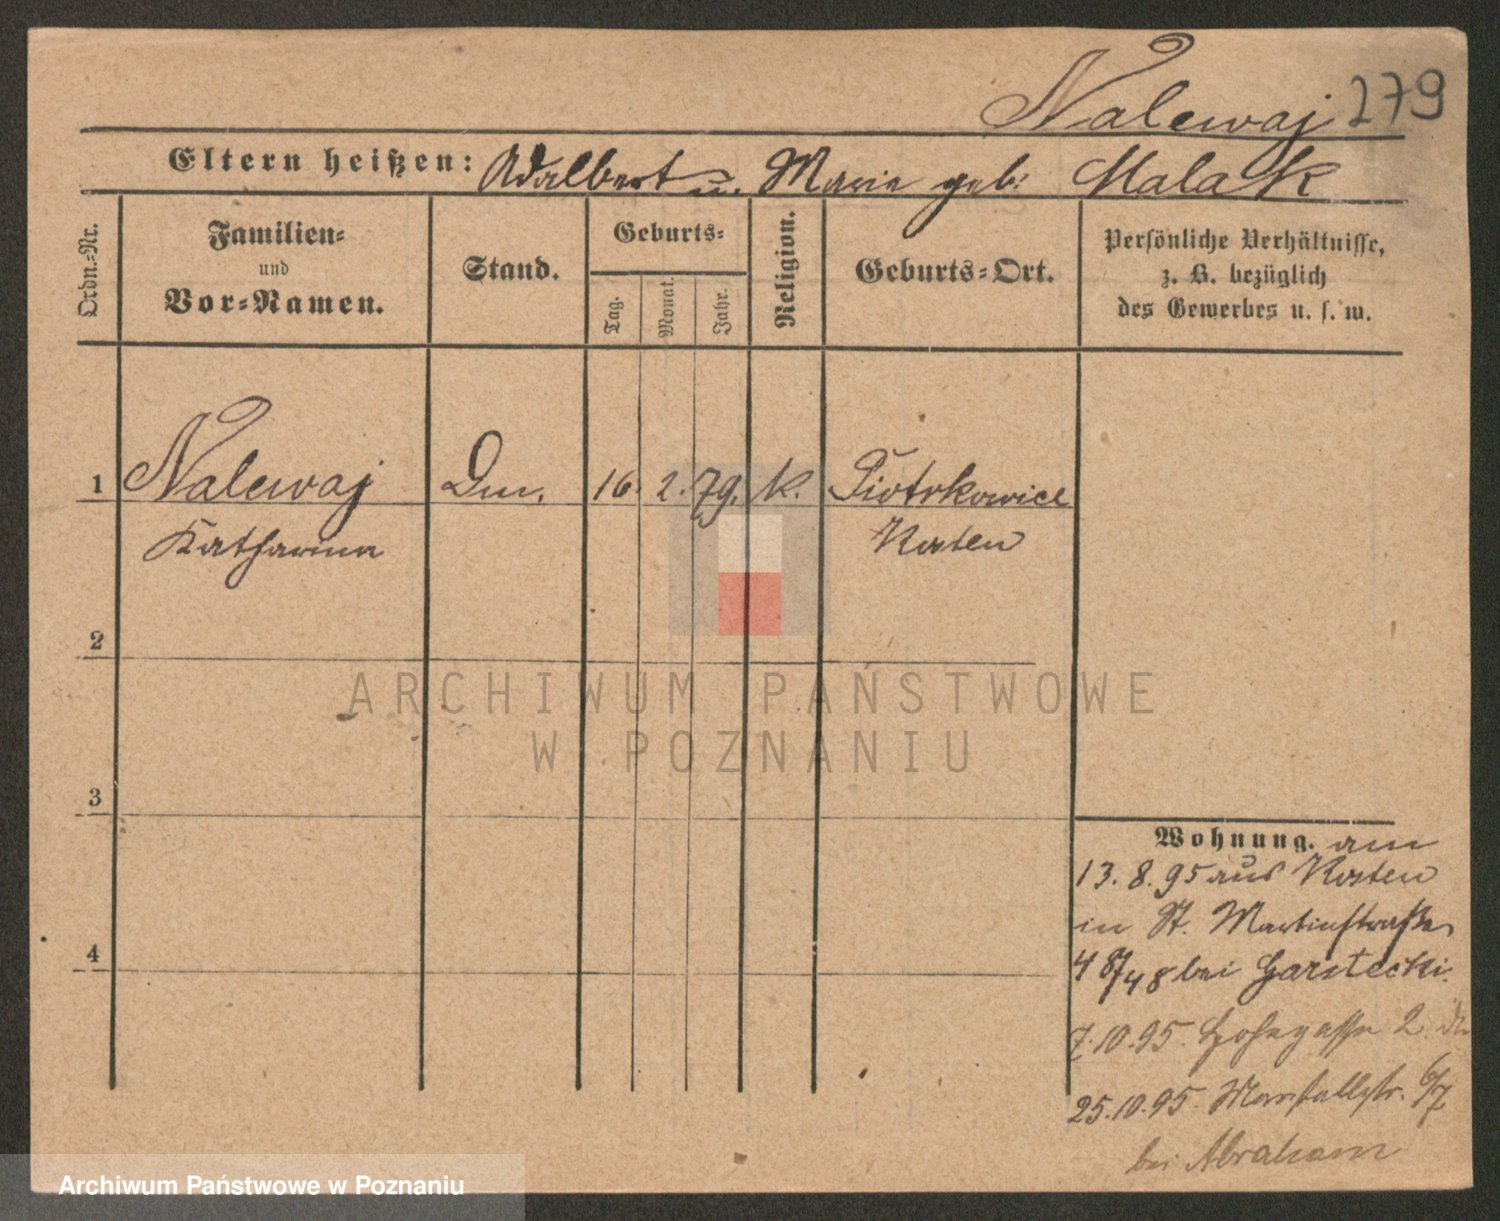 Nalewaj 279
Eltern heißen: Adalbert u. Marie geb. Malak
Ordn.-Nr.
Familien-
und
Vor-Namen.
Stand.
Geburts-
Tag.
Monat.
Jahr.
Religion.
Geburts-Ort.
Persönliche Verhältnisse,
z. B. bezüglich
des Gewerbes u. s. w.
1 Nalewaj Dm. 16. 2. 79. k. Piotrkowice
Katharina Kosten
2
3
4
Wohnung. am
13. 8. 95 aus Kosten
in St. Martinstraße
48 bei Garstecki.
7.10.95. Hohegasse 2
25.10.95 Marstallstr. 6/7
bei Abraham
ARCHIWUM PAŃSTWOWE
W POZNANIU
Archiwum Państwowe w Poznaniu